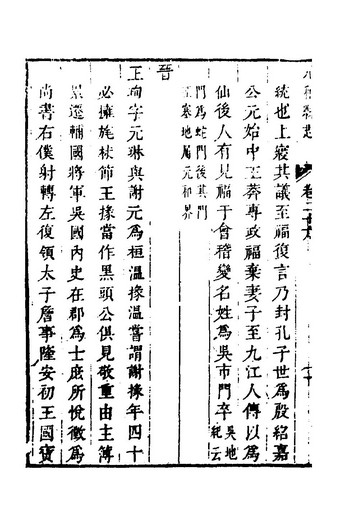 卷二十六
統也上寢其議至福復言乃封孔子世爲殷紹嘉
公元始中王莽專政福棄妻子至九江人傳以爲
仙後人有見福于會稽變名姓爲吳市門卒吳地
記云
門爲蛇門後其門
王墓地屬元和界
晉
王珣字元琳與謝元爲桓溫掾溫嘗謂謝掾年四十
必擁旄杖節王掾當作黑頭公俱見敬重由主簿
累遷輔國將軍吳國內史在郡爲士庶所悅徵爲
尚書右僕射轉左復領太子詹事隆安初王國寶